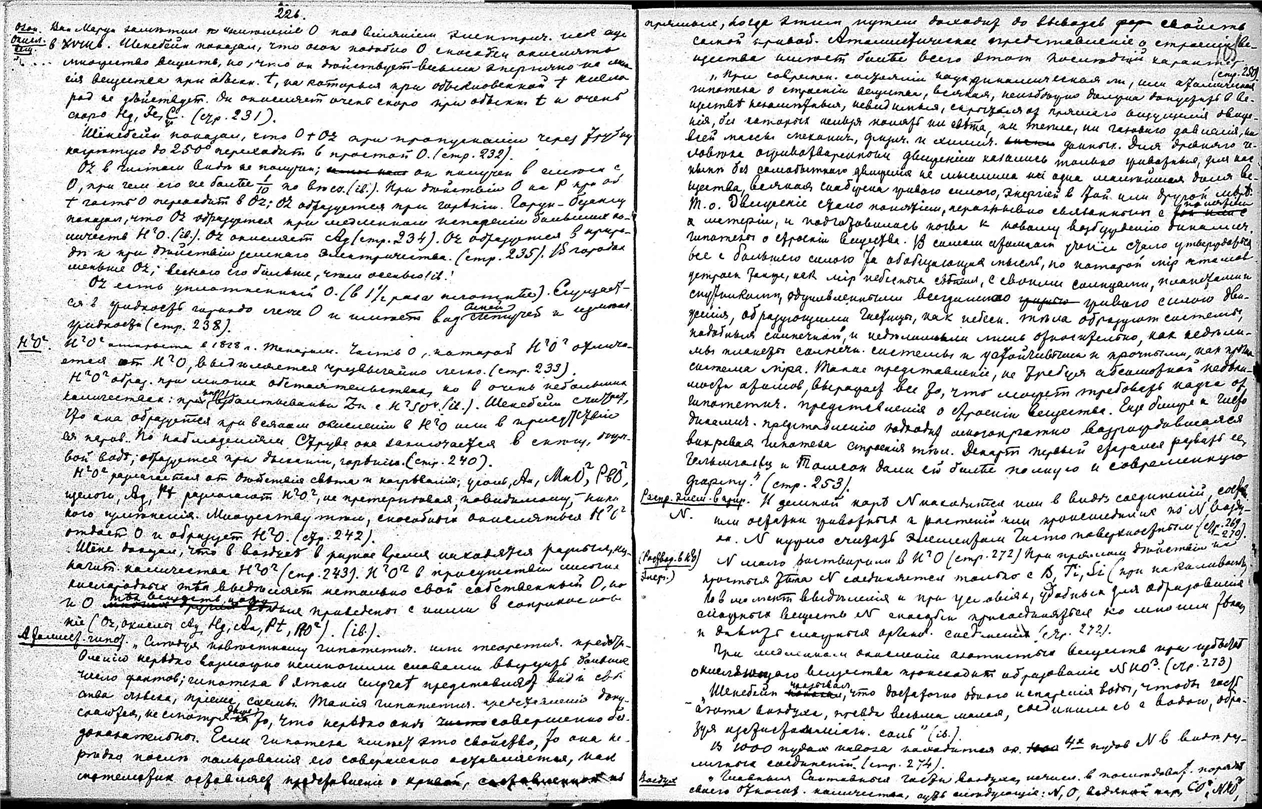 226.
Озон. Ван Марум заметил изменение O под влиянием электрич. искр еще
Окисл. в XVIII в. Шенбейн показал, что озон подобно O способен окислять
множество веществ, но, что он действует весьма энергично на мно-
гия вещества при обыкн. t, на которыя при обыкновенной t кисло-
род не действует. Он окисляет очень скоро при обыкн. t и очень
скоро Hg, Ag (стр. 231).
Шенбейн показал, что O + Oz при пропускании через трубку
нагретую до 250° переходит в простой O. (стр. 232).
Oz в чистом виде не получен; он получен в смеси с
O, при чем его не более 1/10 по (ib.). При действии O на P при об.
t часть O переходит в Oz; Oz образуется при горении. Горуп-Безанец
показал, что Oz образуется при медленном испарении больших ко-
личеств H²O (ib.). Oz окисляет Ag (стр. 234). Oz образуется в приро-
де и при действии электричества. (стр. 235). В городах
меньше Oz; весной его больше, чем осенью (ib.)
Oz есть уплотненный O. (в 1½ раза плотнее). Сгущает-
ся в жидкость гораздо легче O и имеет вид синей и
жидкости (стр. 238).
H²O² H²O² открыта в 1818 г. Тенаром. Часть O, которой H²O² отлича-
ется от H²O, выделяется чрезвычайно легко. (стр. 239).
H²O² образ. при многих обстоятельствах, но в очень небольших
количествах: при взбалтывании Zn с H²SO⁴ (ib.). Шенбейн считает,
что она образуется при всяком окислении в H²O или в присутствии
ея паров. По наблюдениям Струве она заключается в снегу, дожде-
вой воде; образуется при дыхании, горении. (стр. 240).
H²O² разлагается от действия света и нагревания; уголь, Au, MnO², PbO²,
щелочи, Ag, Pt разлагают H²O², не претерпевая, повидимому, ника-
кого изменения. Множеству тел, способных окисляться H²O²
отдает O и образует H²O. (стр. 242).
Шене доказал, что в воздухе в разное время находятся разныя, ни-
чтожн. количества H²O² (стр. 243). H²O² в присутствии многих
кислородных тел выделяет не только свой собственный O, но
и O тех веществ, кои приведены с ними в соприкоснове-
ние (Oz, окислы Ag, Hg, Au, Pt, PbO²). (ib.).
Атомист. гипот. „Следуя
гипотетич. или теоретич. представ-
лению нередко возможно немногими словами выразить большое
число фактов; гипотеза в этом случае представляет вид и свой-
ства языка, прием, систему. Такия гипотетич. предложения допу-
скаются, не смотря даже на то, что нередко они совершенно без-
доказательны. Если гипотеза имеет это свойство, то она не-
редко после пользования его совершенно оставляется, как
математик оставляет представление о кривой, составленной из
прямых, когда этим путем доходит до выводов свойств
самой кривой. Атомистическое представление о строении ве-
щества имеет более всего этот последний характер" (стр. 250).
„При современ. состоянии наук динамическая ли, или атомическая
гипотеза о строении вещества, всякая, неизбежно должна допускать в ве-
ществе незаметныя, невидимыя, скрытыя от прямого ощущения движе-
ния, без которых нельзя понять ни света, ни тепла, ни газового давления, ни
всей массы механич., физич. и химич. данных. Для древняго че-
ловека одухотворенным движением казались только животныя, для нас
ныне без самобытного движения не мыслима ни одна малейшая доля ве-
щества, всякая снабжена живою силою, энергией в той или другой мере.
Т.о. движение стало понятием, неразрывно связанным с понятием
о материи, и подготовилась почва к новому возбуждению динамич.
гипотезы о строении вещества. В самом атомном учении стало утверждаться
все с большею силою та обобщающая мысль, по которой мир атомов
устроен также, как мир небесных светил, с своими солнцами, планетами и
спутниками, одушевленными всегдашнею живою силою дви-
жения, образующими частицы, как небесн. тела образуют системы,
подобныя солнечной, и неделимыми лишь относительно, как недели-
мы планеты солнечн. системы и устойчивыми и прочными, как прочна
система мира. Такое представление, не требуя абсолютной недели-
мости атомов, выражает все то, что может требовать наука от
гипотетич. представления о строении вещества. Еще ближе к чисто
динамич. представлению подходит многократно возрождавшаяся
вихревая гипотеза строения тел. Декарт первый старался развить ее,
Гельмгольц и Томсон дали ей более полную и современную
форму." (стр. 253).
N. В земной коре N находится или в виде соединений,
или остатки животных и растений или происшедших из N возду-
ха. N нужно считать элементом чисто поверхностным (стр. 269-270).
(Раствор. в H²O) N мало растворим в H²O (стр. 272). При прямом действии на
(Энер.) простыя тела N соединяется только с B, Ti, Si (при накаливании),
но в момент выделения и при условиях, удобных для образования
сложных веществ N способен присоединяться ко многим телам
и давать сложныя орган. соединения (стр. 272).
При медленном окислении азотистых веществ при избытке
окисляющаго вещества происходит образование NHO³. (стр. 273)
Шенбейн показал, что достаточно одного испарения воды, чтобы часть
азота воздуха, правда весьма малая, соединилась с водою, обра-
зуя азотистоаммиачн. соль" (ib.).
В 1000 пудах навоза находится ок. 4х пудов N в виде слу-
жных соединений. (стр. 274).
Воздух „Главныя составныя части воздуха, исчисл. в последоват. порядке
своего относит. количества, суть следующия: N, O, водяной пар, CO²,